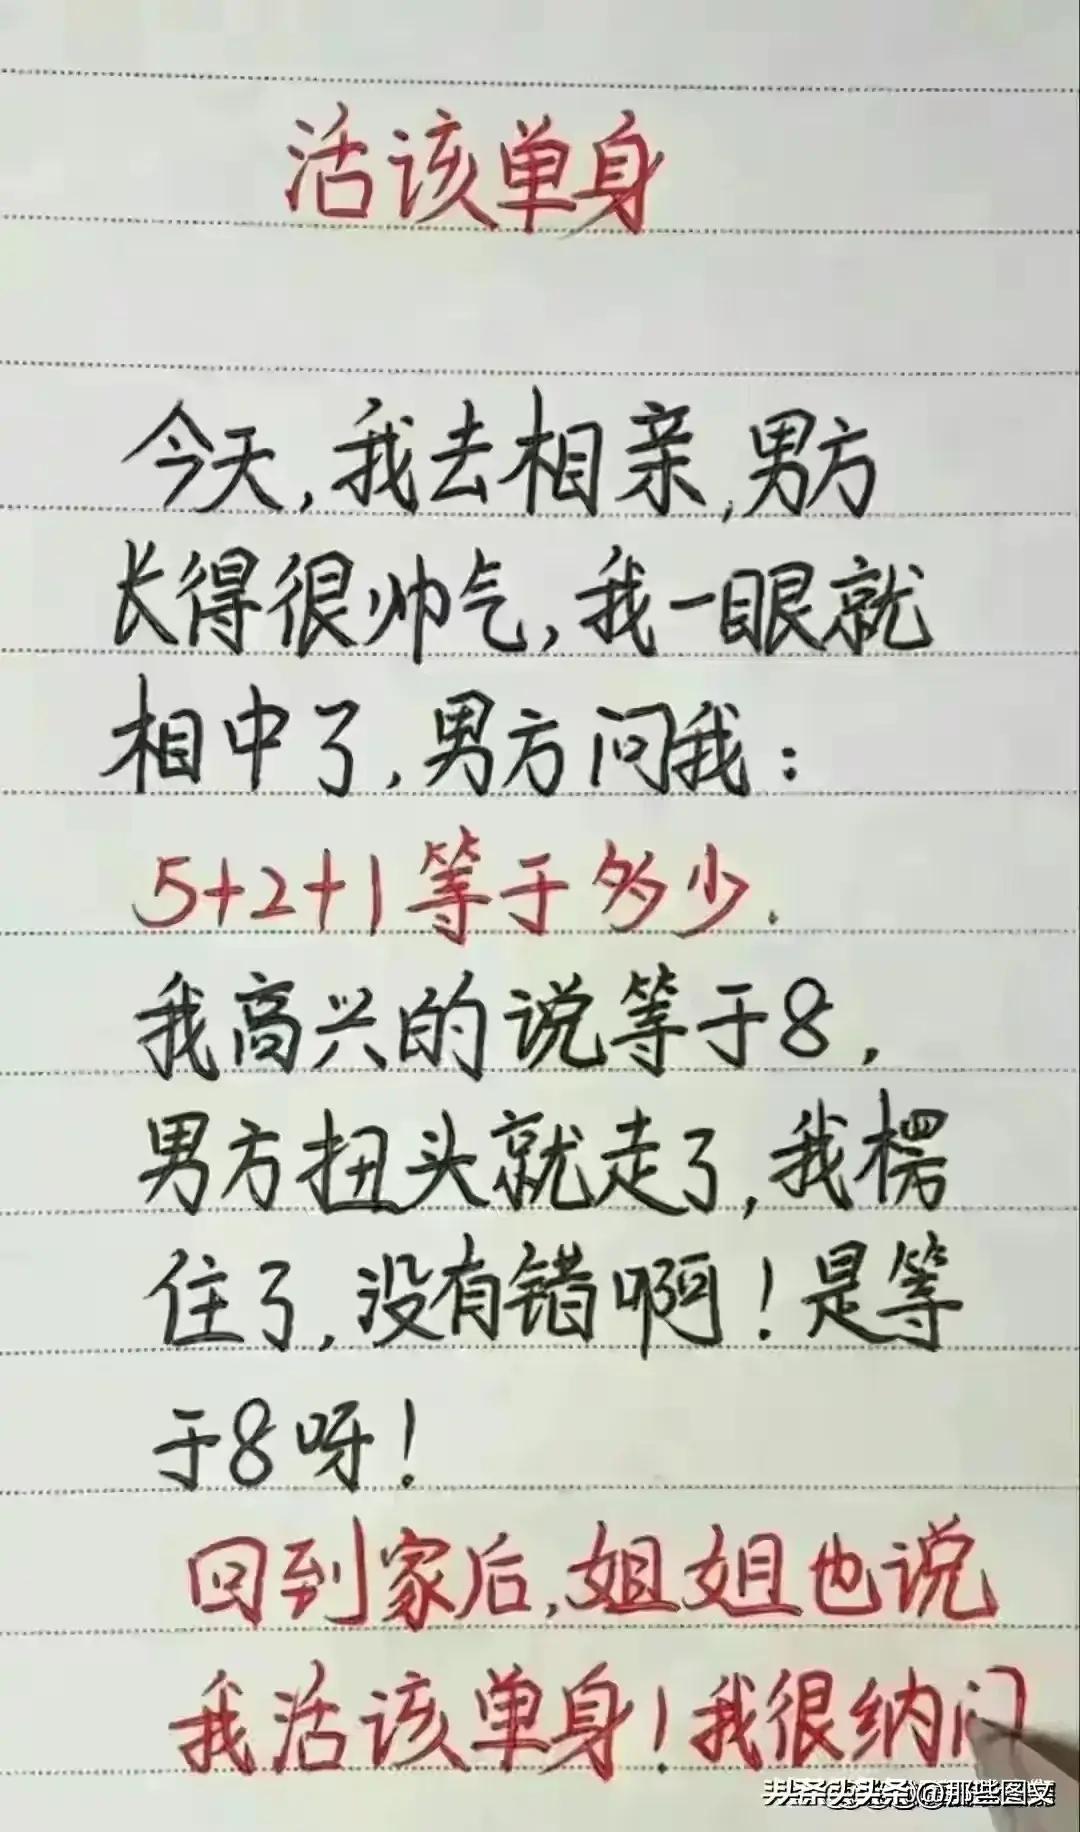 活该单身
今天,我去相亲,男方
长得很帅气,我一眼就
相中了,男方问我:
5+2+1等于多少.
我高兴的说等于8,
男方扭头就走了,我楞
住了,没有错啊!是等
于8呀!
回到家后,姐姐也说
我活该单身!我很纳闷
@那些图文